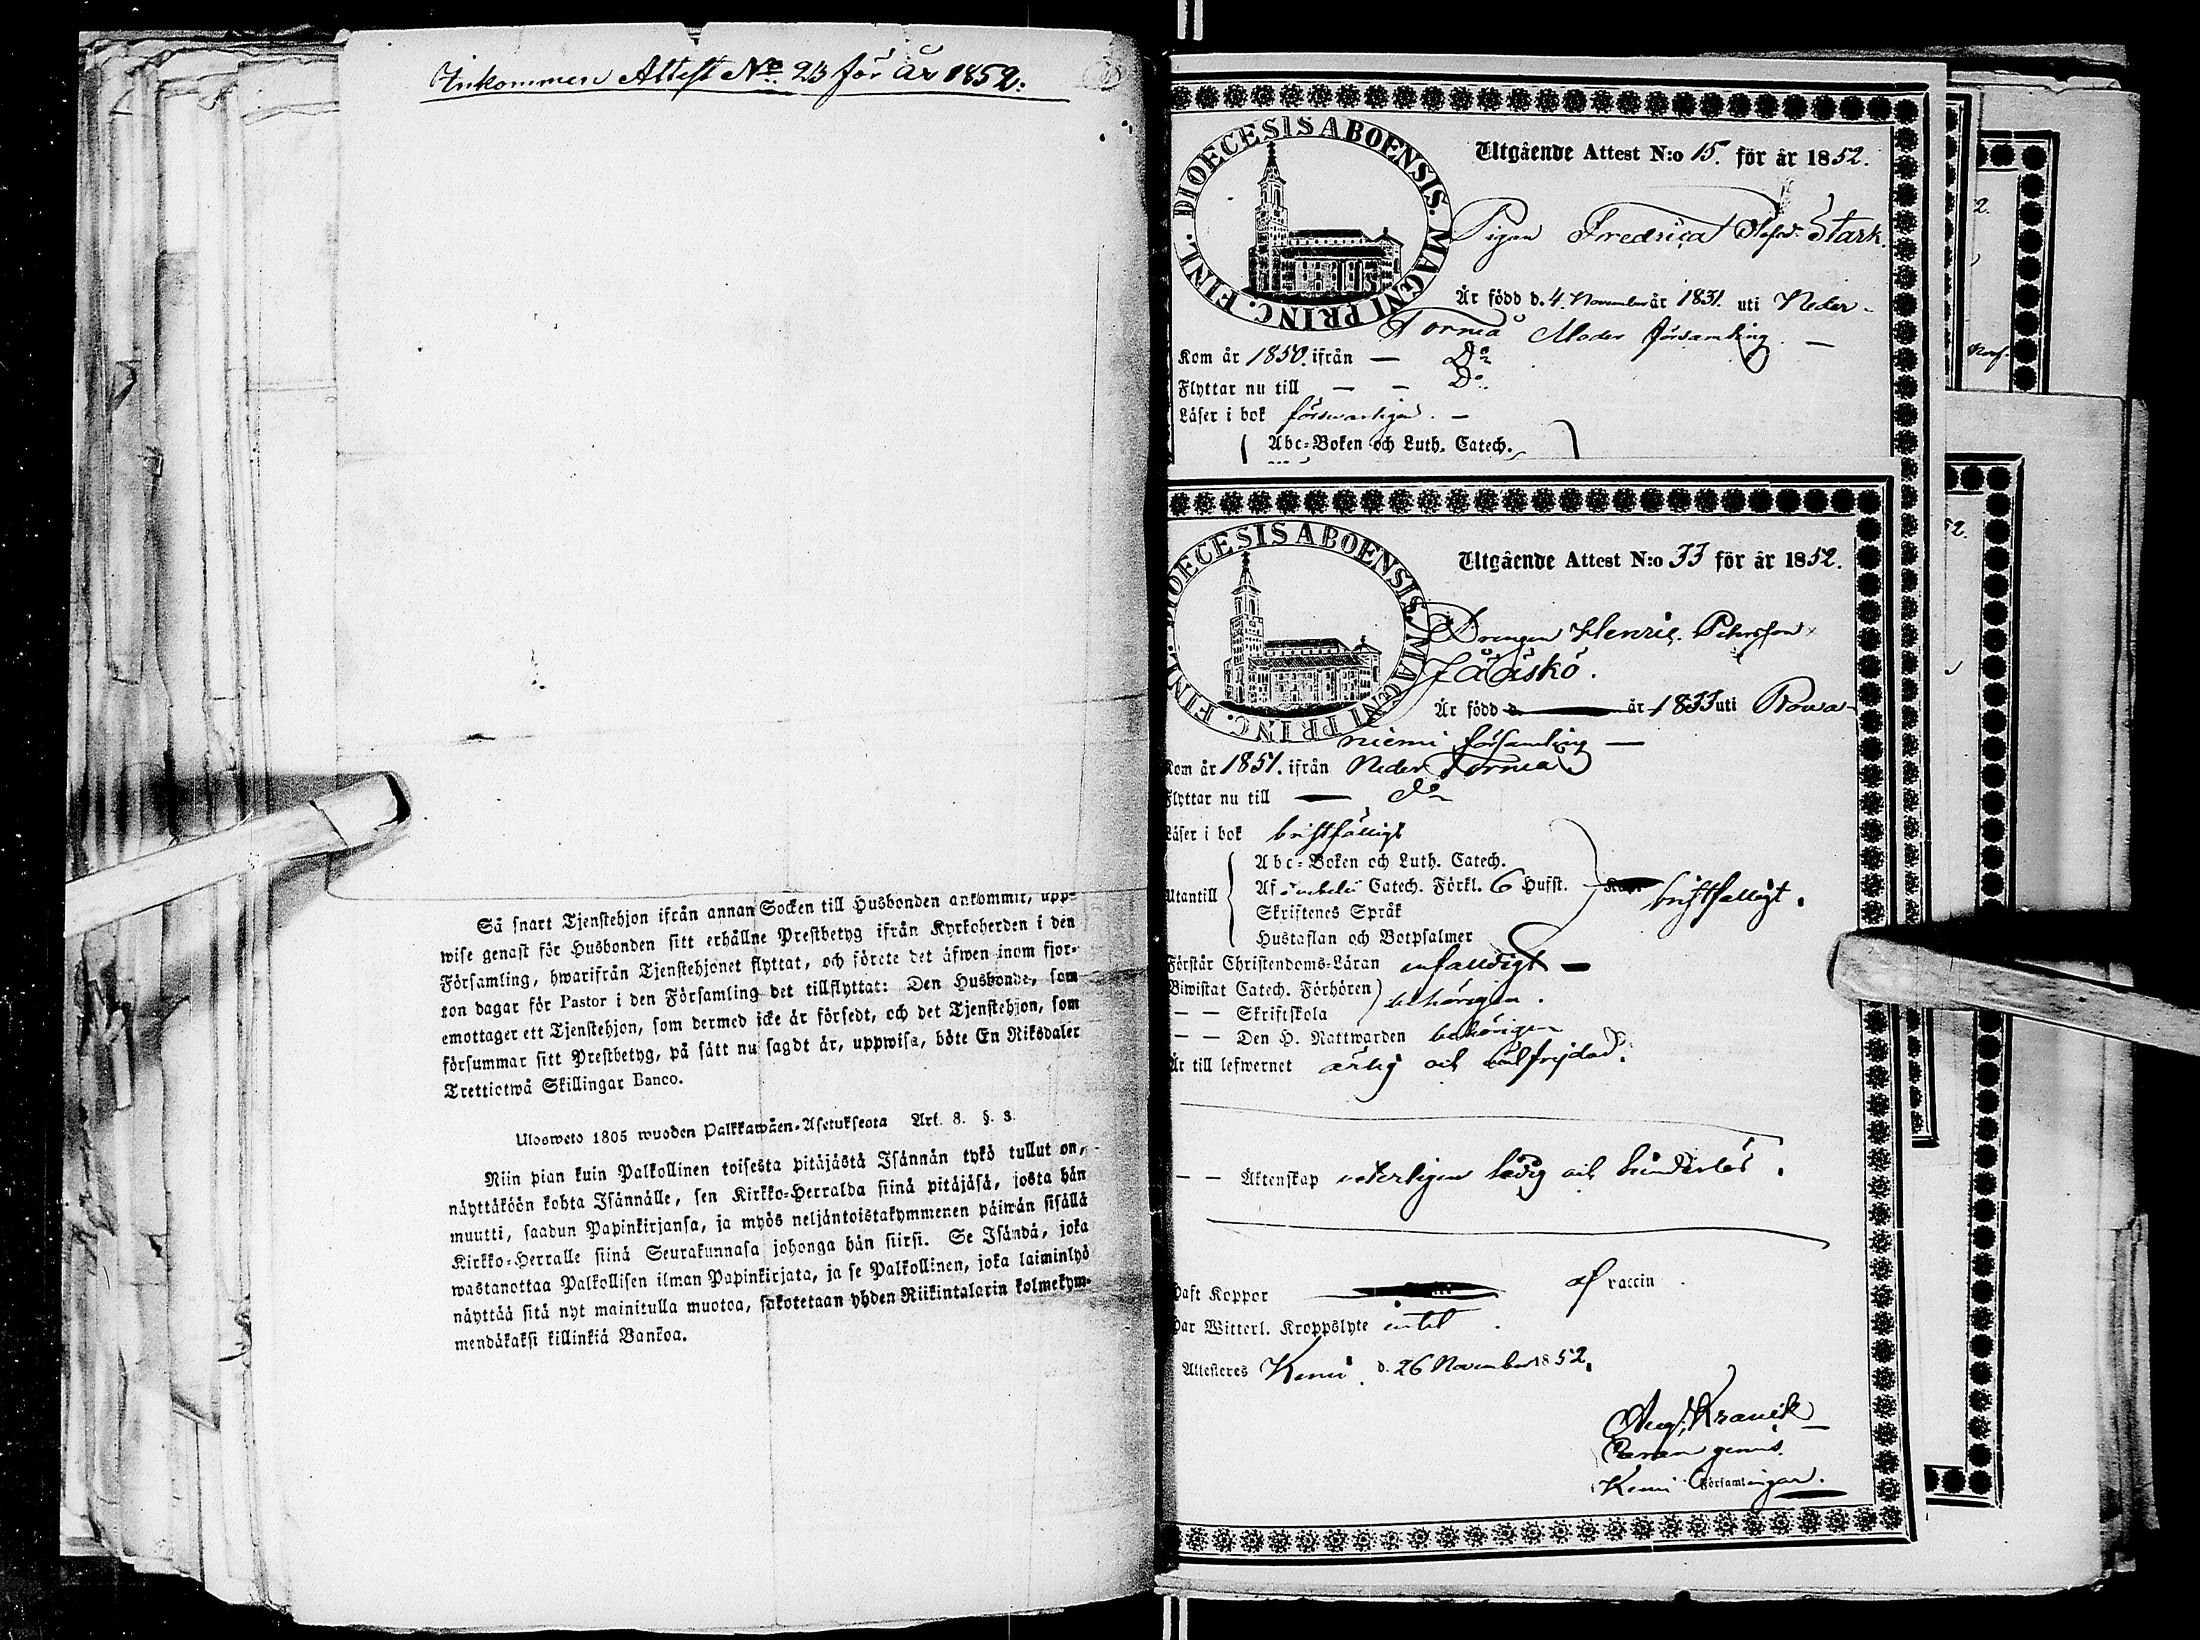 Inkommen Attest No 23 för år 1852.
Så snart Tjenstehjon ifrån annan Socken till Husbonden ankommit, upp-
wise genast för Husbonden sitt erhållne Prestbetyg ifrån Kyrkoherden i den
Församling, hwarifrån Tjenstehjonet flyttat, och förete det äfwen inom fjor-
ton dagar för Pastor i den Församling det tillflyttat: Den Husbonde, som
emottager ett Tjenstehjon, som dermed icke är försedt, och det Tjenstehjon, som
försummar sitt Prestbetyg, på sätt nu sagdt är, uppwisa, böte En Riksdaler
Trettiotwå Skillingar Banco.
Ulosweto 1805 wuoden Palkkawäen-Asetuksesta Art. 8. §. 3.
Niin pian kuin Palkollinen toisesta pitäjästä Isännän tykö tullut on,
näyttäköön kohta Isännälle, sen Kirkko-Herralda siinä pitäjäsä, josta hän
muutti, saadun Papinkirjansa, ja myös neljäntoistakymmenen päiwän sisällä
Kirkko-Herralle siinä Seurakunnasa johonga hän siirsi. Se Isändä, joka
wastanottaa Palkollisen ilman Papinkirjata, ja se Palkollinen, joka laiminlyö
näyttää sitä nyt mainitulla muotoa, sakotetaan yhden Riikintalarin kolmekym-
mendäkaksi killinkiä Bankoa.
DIOECESIS ABOENSIS. MAGNI PRINC. FINL.
Utgående Attest N:o 15. för år 1852.
Pigan Fredrica Stark.
Är född d. 4 November år 1831. uti Neder-
Torneå Moder församling. —
Kom år 1850. ifrån — Do
Flyttar nu till — — Do
Läser i bok försvarligen. —
Abc-Boken och Luth. Catech.
DIOECESIS ABOENSIS. MAGNI PRINC. FINL.
Utgående Attest N:o 33 för år 1852.
Drengen Henric Petersson
Jääskö.
Är född d. år 1833 uti Rowa-
niemi församling —
Kom år 1851. ifrån Neder Torneå
Flyttar nu till — do
Läser i bok bristfälligt
Abc-Boken och Luth. Catech.
Utantill Af Catech. Förkl. 6 Hufst. bristfälligt.
Skriftenes Språk
Hustaflan och Botpsalmer
Förstår Christendoms-Läran enfaldigt —
Biwistat Catech. Förhören behörigen.
— — Skriftskola
— — Den H. Nattwarden behörigen
Är till lefwernet ärlig och välfrejdad.
— — Äktenskap veterligen ledig och hinderlös.
Haft Koppor af vaccin
Har Witterl. Kroppslyte intet.
Attesteres Kemi d. 26 November 1852.
Aug. Kranck
Kemi Församlingar.